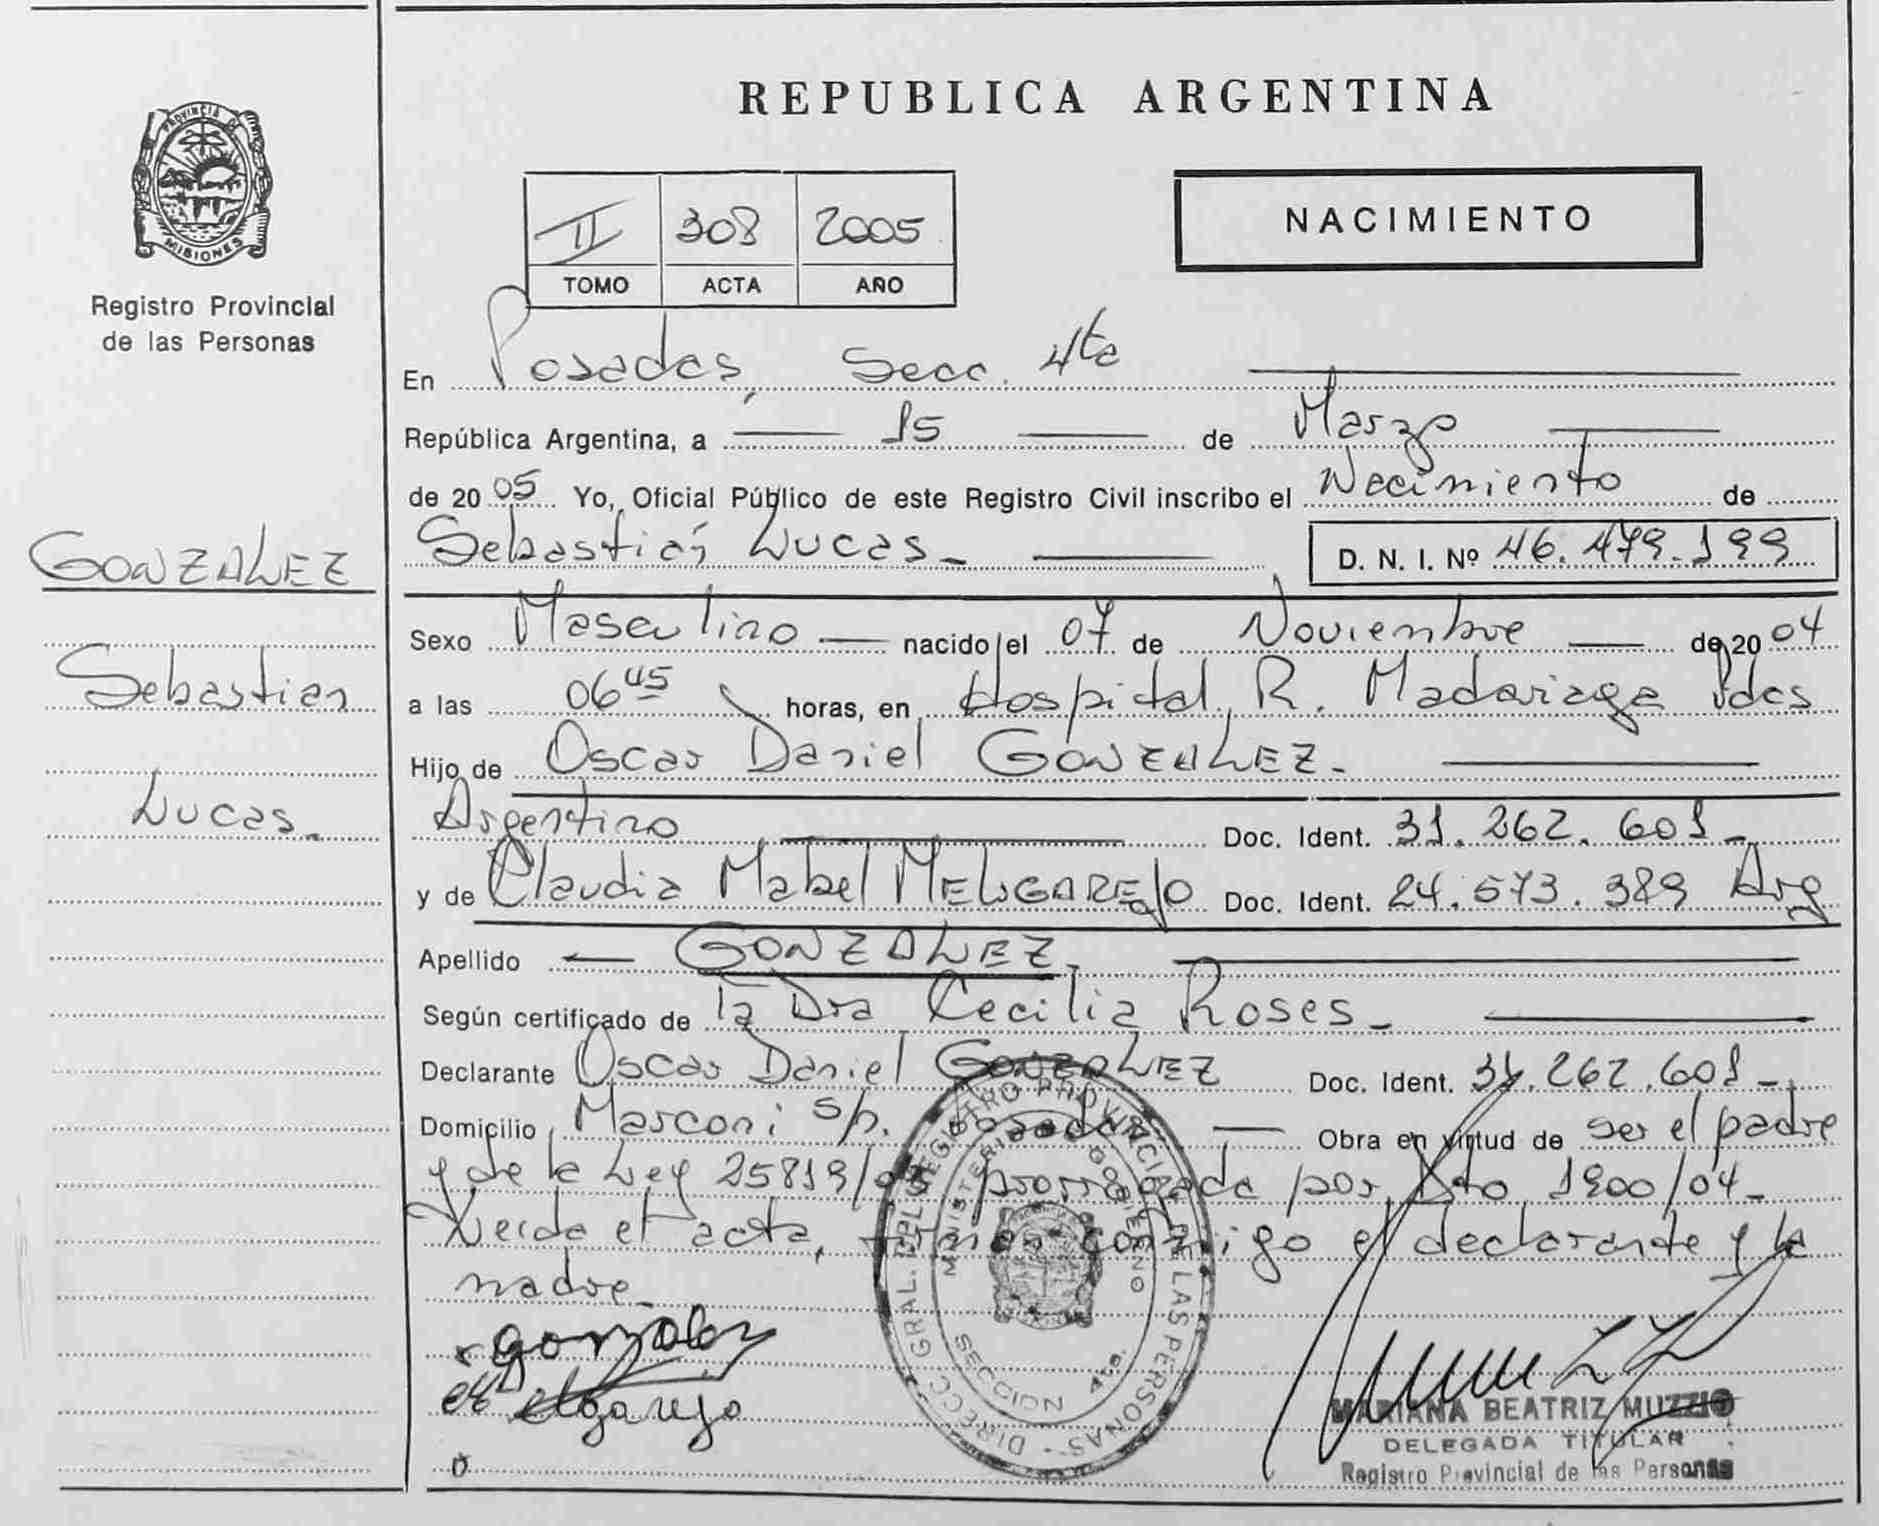 PROVINCIA DE
MISIONES
Registro Provincial
de las Personas
REPUBLICA ARGENTINA
II 308 2005
TOMO ACTA AÑO
NACIMIENTO
En Posadas, Secc. 4ta
República Argentina, a 15 de Marzo
de 2005 Yo, Oficial Público de este Registro Civil inscribo el Nacimiento de
Sebastián Lucas. D. N. I. Nº 46.479.199
GONZALEZ
Sebastian
Lucas.
Sexo Masculino nacido el 07 de Noviembre de 2004
a las 06 45 horas, en Hospital R. Madariaga Pdas
Hijo de Oscar Daniel GONZALEZ.
Argentino Doc. Ident. 31.262.601
y de Claudia Mabel MELGAREJO Doc. Ident. 24.573.389 Arg
Apellido GONZALEZ.
Según certificado de la Dra Cecilia Roses.
Declarante Oscar Daniel GONZALEZ Doc. Ident. 31.262.601
Domicilio Marconi s/n. Posadas Obra en virtud de ser el padre
y de la Ley 25819/03 prorrogada por Dto 1900/04
Leída el acta, firman conmigo el declarante y la
madre
Gonzalez
Melgarejo
DIRECC. GRAL. DEL REGISTRO PROVINCIAL DE LAS PERSONAS
MINISTERIO GOBIERNO
SECCION 4ta.
MARIANA BEATRIZ MUZZIO
DELEGADA TITULAR
Registro Provincial de las Personas